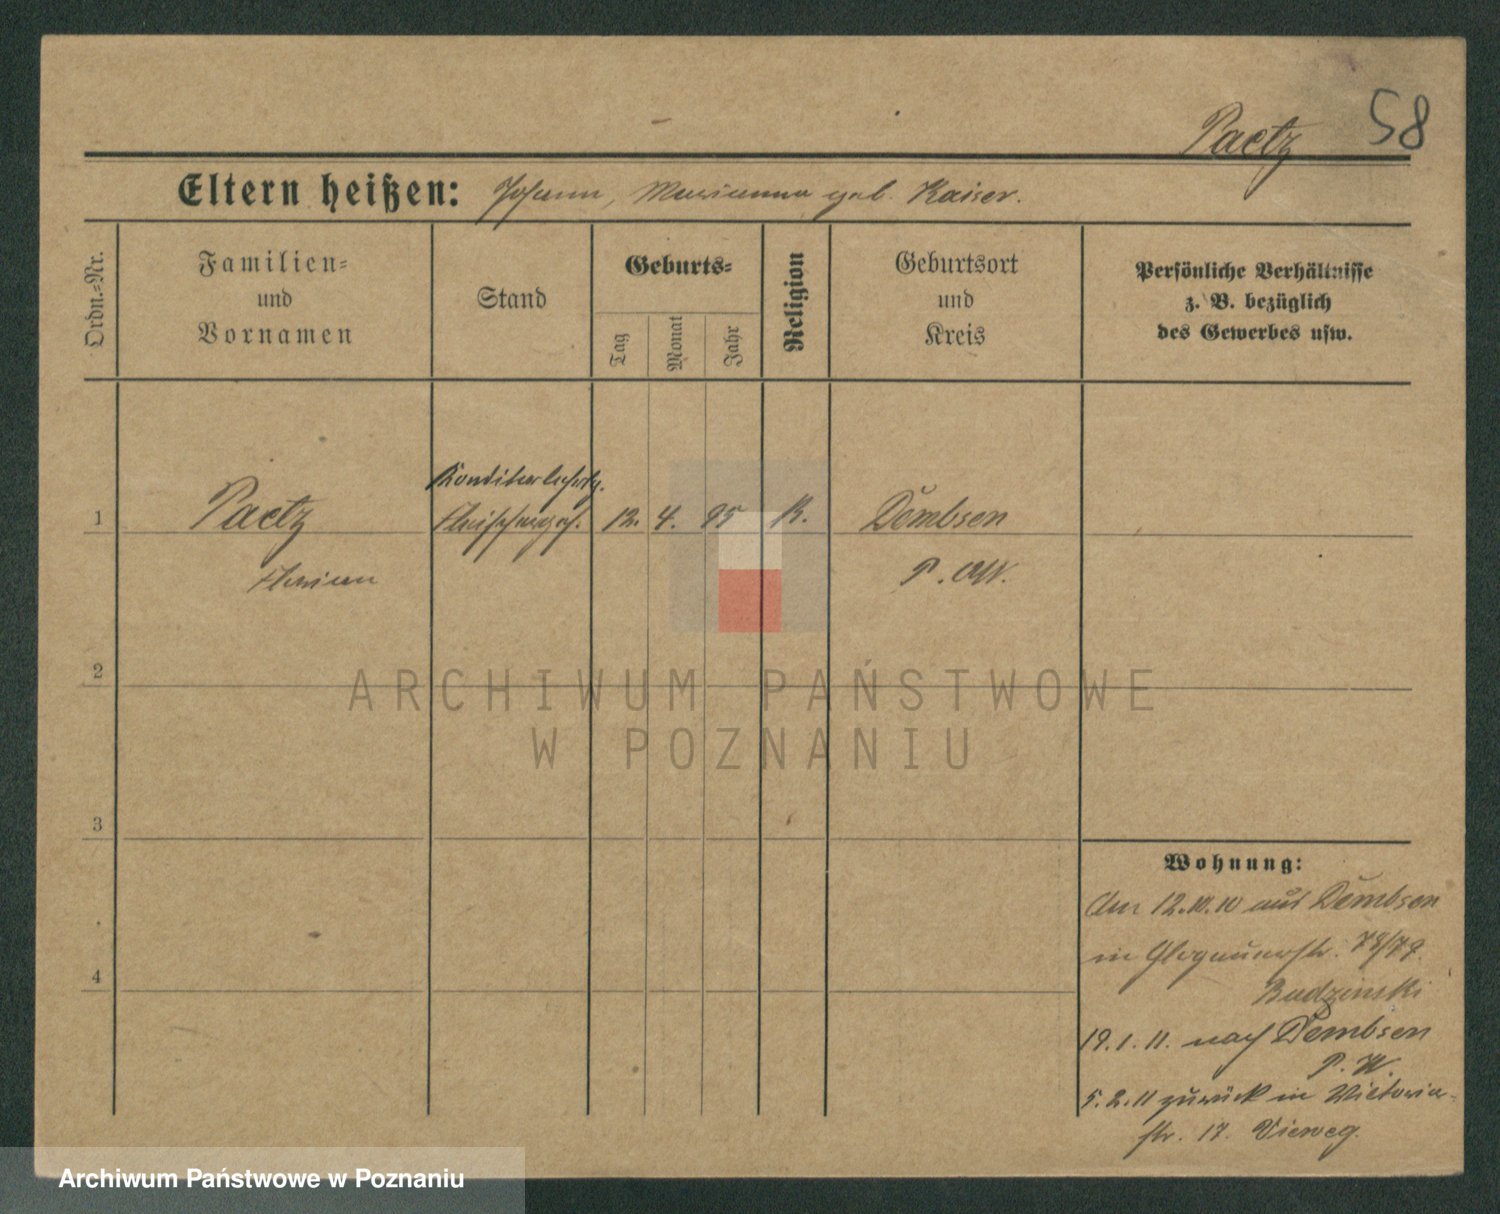 58
Paetz
Eltern heißen: Johann, Marianna geb. Kaiser.
Ordn.-Nr.
Familien-
und
Vornamen
Stand
Geburts-
Tag
Monat
Jahr
Religion
Geburtsort
und
Kreis
Persönliche Verhältnisse
z. B. bezüglich
des Gewerbes usw.
Konditorlehrlg.
1 Paetz Fleischerges. 12. 4. 95 K. Dembsen
Florian P. W.
2
ARCHIWUM PAŃSTWOWE
W POZNANIU
3
4
Wohnung:
Am 12.10.10 aus Dembsen
in Glogauerstr. 78/79.
Budzinski
19.1.11. nach Dembsen
P. W.
5.2.11 zurück in Victoria-
str. 17. Vieweg.
Archiwum Państwowe w Poznaniu